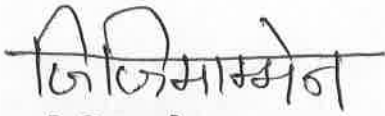 जिजिमाम्मेन